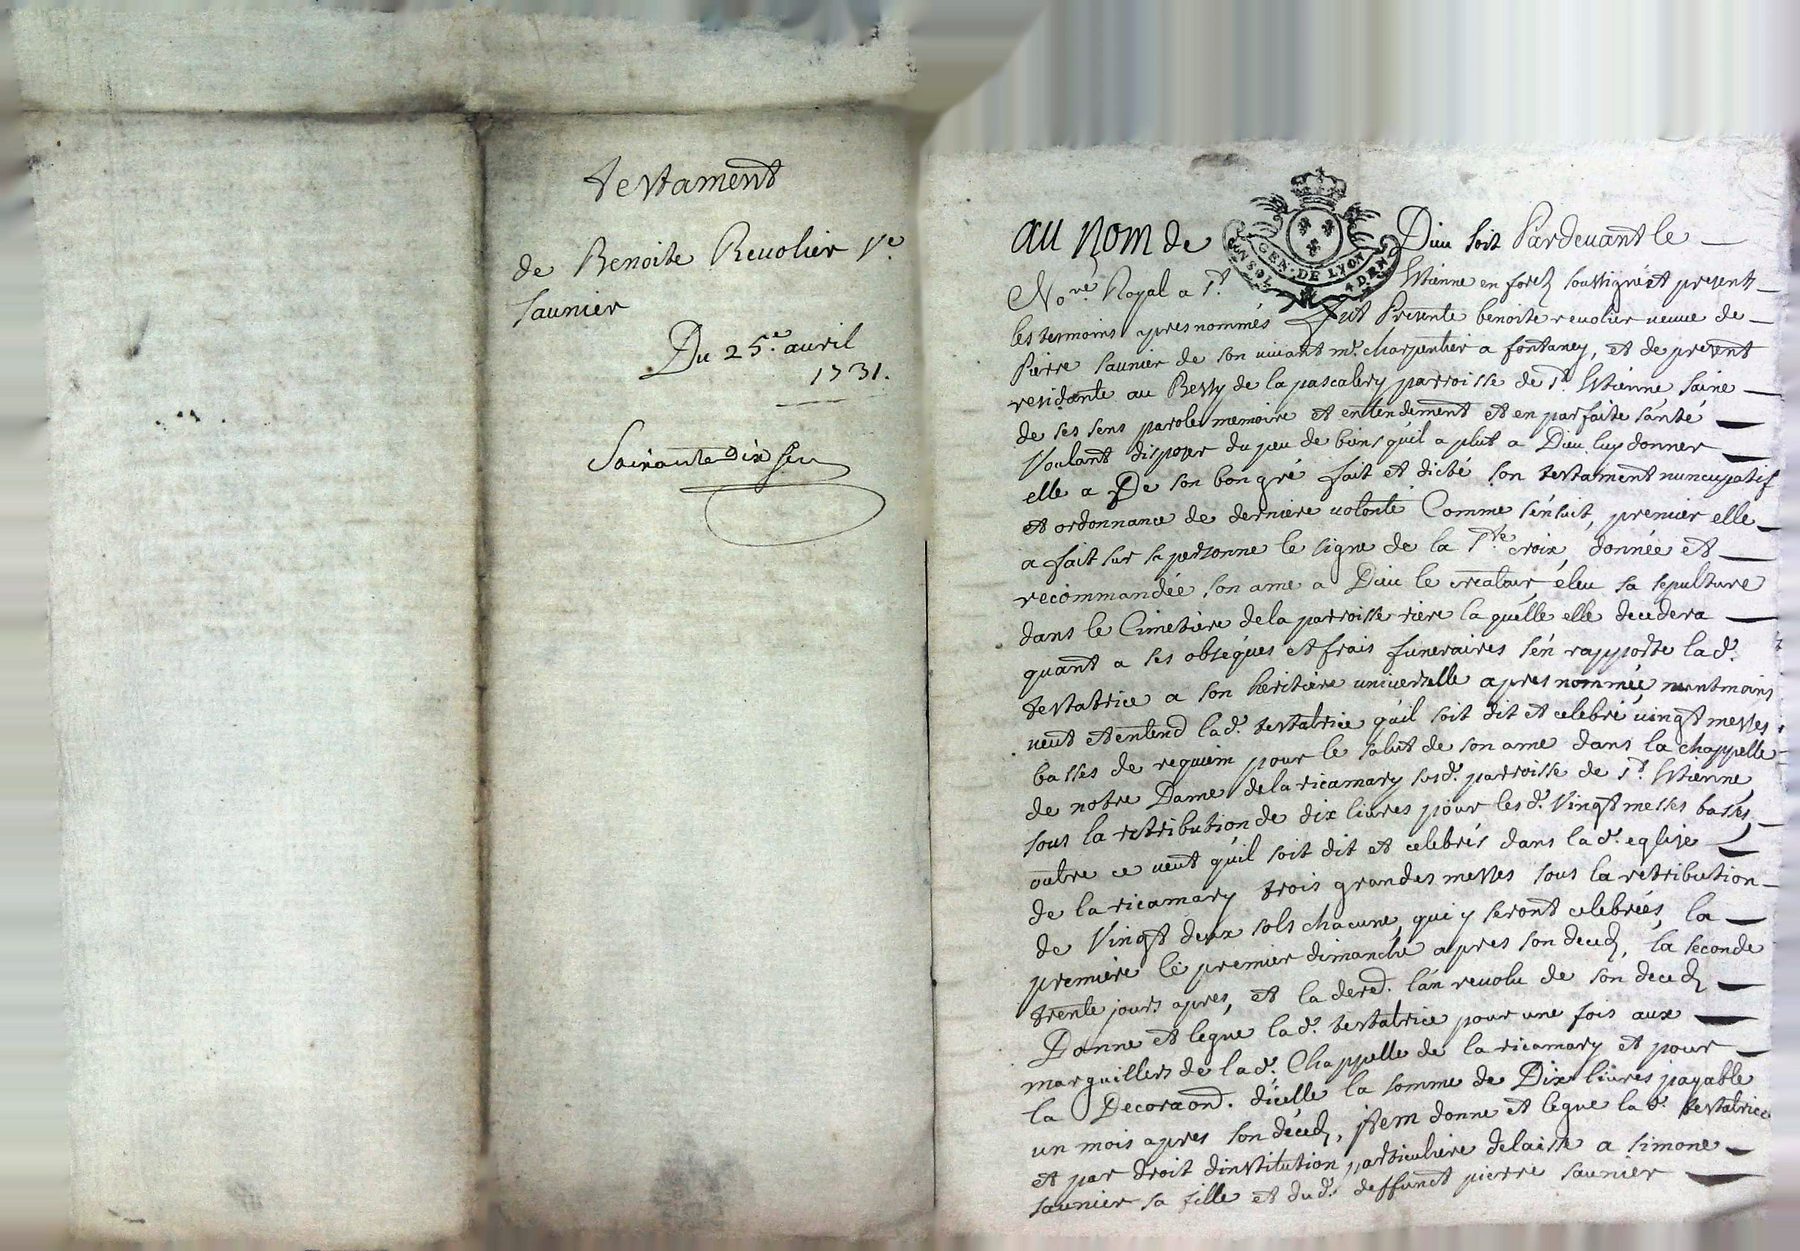 testament
de Benoite Reuolier Ve
saunier
Du 25e. auril
1731.
Soixante dix
au nom de Dieu soit Pardeuant le
Nore. Royal a St. Estienne en forez soussigné et present
les temoins apres nommés fut Presente benoite reuolier ueuue de
Pierre saunier de son uiuant me. charpentier a fontaney, et de present
residante au Bessy de la pascalery parroisse de St. Estienne saine
de ses sens parole memoire et entendement et en parfaite santé
Voulant disposer du peu de biens qu'il a plut a Dieu luy donner
elle a De son bon gré fait et dicté son testament nuncupatif
et ordonnance de derniere uolonté Comme s'ensuit, premier elle
a fait sur sa personne le signe de la Ste croix, donnée et
recommandée son ame a Dieu le createur éleu sa sepulture
dans le Cimetiere de la parroisse riere la quelle elle decedera
quant a ses obséques et frais funeraires s'en rapporte lad.
testatrice a son heritiere uniuerselle apres nommée neantmoins
ueut et entend lad. testatrice qu'il soit dit et celebré uingt messes
basses de requiem pour le salut de son ame dans la chappelle
de notre Dame de la ricamary susd. parroisse de St. Estienne
sous la retribution de dix liures pour lesd. Vingt messes basses,
outre ce ueut qu'il soit dit et celebrés dans lad. eglise
de la ricamary trois grandes messes sous la retribution
de Vingt deux sols chacune, qui y seront celebreés, la
premiere le premier dimanche apres son deced, la seconde
trente jours apres, et la dered. l'an reuolu de son deced
Donne et legue lad. testatrice pour une fois aux
marguillers de lad. Chappelle de la ricamary et pour
la Decoraond. d'icelle la somme de Dix liures payable
un mois apres son déced, Item donne et legue lad. testatrice
et par droit d'institution particuliere delaisse a simone
saunier sa fille et dud. deffunct pierre saunier
GEN. DE LYON